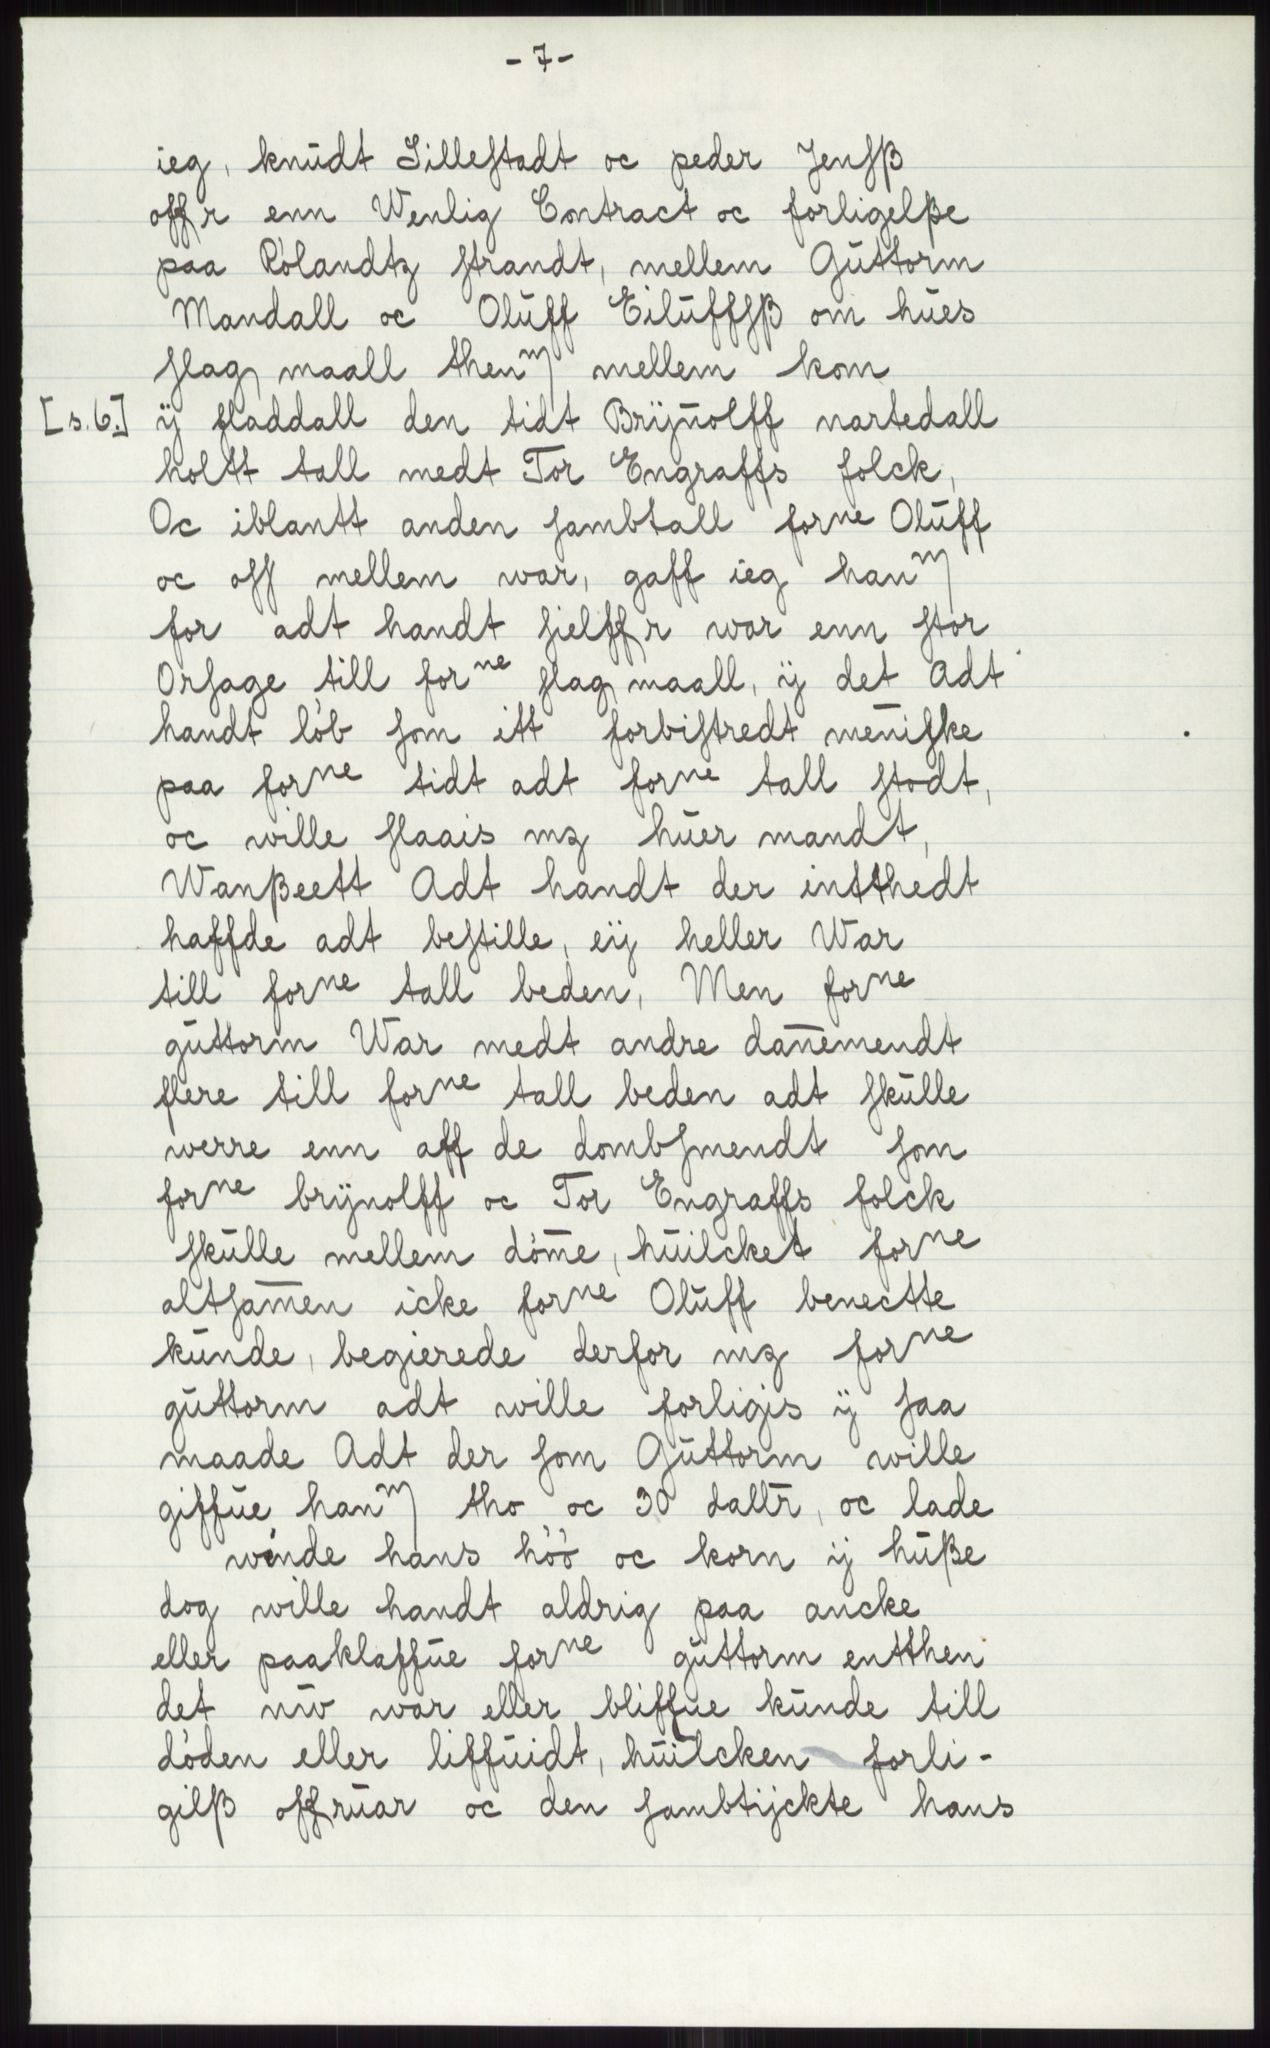 - 7 -
ieg, knudt Lillestadt oc peder Jensß
offr enn Wenlig Contract oc forligelße
paa Rölandtz strandt, mellem Guttorm
Mandall oc Oluff Eiluffsß om hues
slag maall thenm mellem kom
[s. 6.] ÿ sladdall den tidt Brÿnolff nartedall
holtt tall medt Tor Engraffs folck,
Oc iblantt anden sambtall forne Oluff
oc oss mellem war, gaff ieg hanm
for adt handt sielffr war enn stor
Orsage till forne slag maall, ÿ det Adt
handt löb som itt forbistredt mēniske
paa forne tidt adt forne tall stodt,
oc wille slaais mz huer mandt,
Wanßeett Adt handt der intthedt
haffde adt bestille, eÿ heller War
till forne tall beden, Men forne
guttorm War medt andre dan̄emendt
flere till forne tall beden adt skulle
werre enn aff de dombsmendt som
forne brÿnolff oc Tor Engraffs folck
skulle mellem döm̄e, huilcket forne
altsam̄en icke forne Oluff benectte
kunde, begierede derfor mz forne
guttorm adt wille forligis ÿ saa
maade Adt der som Guttorm wille
giffue hanm tho oc 30 dallr̄, oc lade
winde hans höö oc korn ÿ huße
dog wille handt aldrig paa ancke
eller paaklaffue forne guttorm entthen
det nw war eller bliffue kunde till
döden eller liffuidt, huilcken forli-
gilß offruar oc den sambtÿckte hans